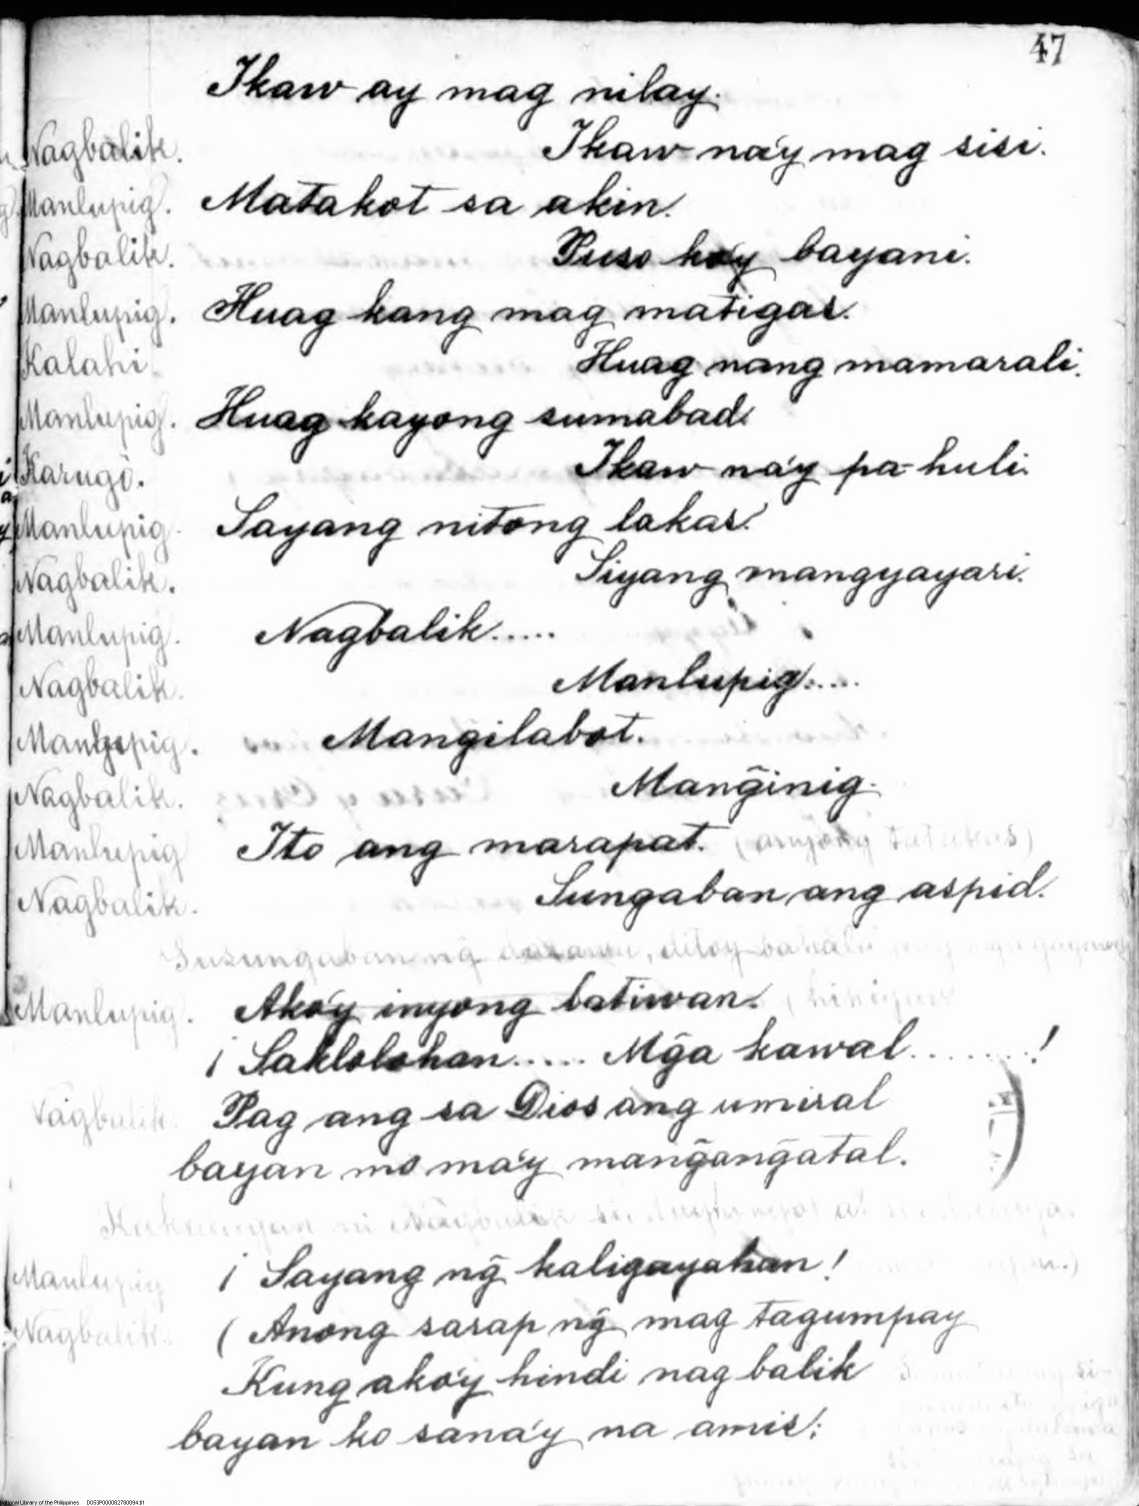 47
Ikaw ay mag nilay.
Nagbalik. Ikaw na'y mag sisi.
Manlupig. Matakot sa akin.
Nagbalik. Puso ko'y bayani.
Manlupig. Huag kang mag matigas.
Kalahi. Huag nang mamarali.
Manlupig. Huag kayong sumabad.
Karugô. Ikaw na'y pa-huli.
Manlupig. Sayang nitong lakas.
Nagbalik. Siyang mangyayari.
Manlupig. Nagbalik.....
Nagbalik. Manlupig.....
Manlupig. Mangilabot.
Nagbalik. Mang̃inig.
Manlupig Ito ang marapat.
Nagbalik. Sungaban ang aspid.
Susungaban ng̃
Manlupig. Ako'y inyong batiwan.
¡ Saklolohan..... Mg̃a kawal........!
Nagbalik. Pag ang sa Dios ang umiral
bayan mo ma'y mang̃ang̃atal.
Manlupig ¡ Sayang ng̃ kaligayahan!
Nagbalik. ( Anong sarap ng̃ mag tagumpay
Kung ako'y hindi nag balik
bayan ko sana'y na amis!
National Library of the Philippines